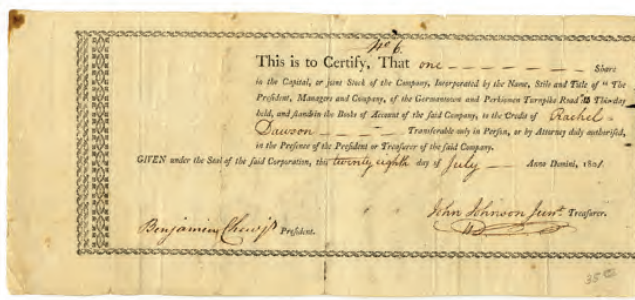 No 6.
This is to Certify, That one Share
in the Capital, or joint Stock of the Company, Incorporated by the Name, Stile and Title of "The
President, Managers and Company, of the Germantown and Perkiomen Turnpike Road" is This day
held, and stands in the Books of Account of the said Company, to the Credit of Rachel
Dawson Transferable only in Person, or by Attorney duly authorised,
in the Presence of the President or Treasurer of the said Company.
GIVEN under the Seal of the said Corporation, this twenty eighth day of July Anno Domini, 180
John Johnson Junr. Treasurer.
Benjamin Chew Jr President.
35